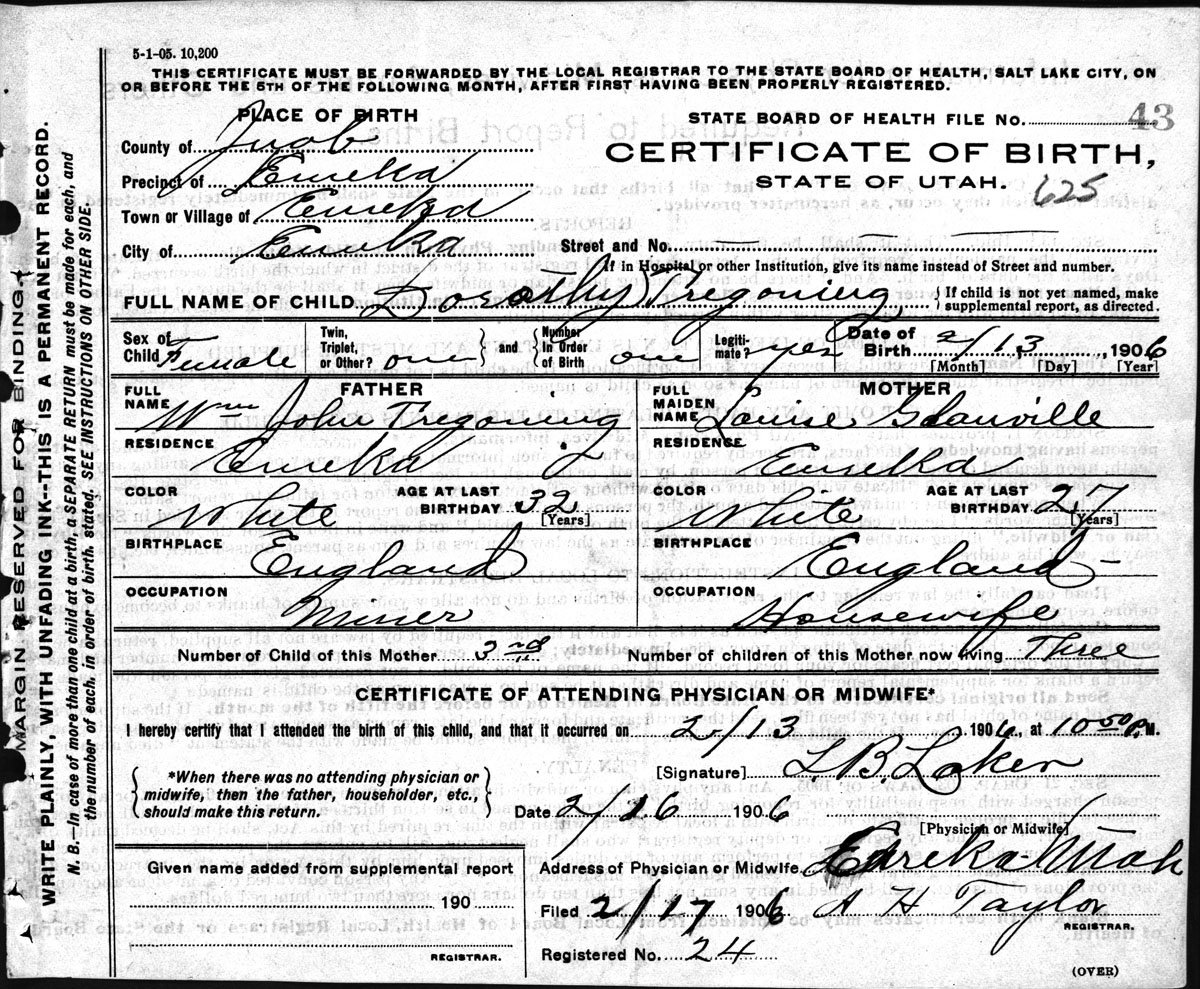 5-1-05. 10,200
THIS CERTIFICATE MUST BE FORWARDED BY THE LOCAL REGISTRAR TO THE STATE BOARD OF HEALTH, SALT LAKE CITY, ON
OR BEFORE THE 5TH OF THE FOLLOWING MONTH, AFTER FIRST HAVING BEEN PROPERLY REGISTERED.
MARGIN RESERVED FOR BINDING.
WRITE PLAINLY, WITH UNFADING INK--THIS IS A PERMANENT RECORD.
N. B.—In case of more than one child at a birth, a SEPARATE RETURN must be made for each, and
the number of each, in order of birth, stated. SEE INSTRUCTIONS ON OTHER SIDE.
PLACE OF BIRTH
County of Juab
Precinct of Eureka
Town or Village of Eureka
City of Eureka
STATE BOARD OF HEALTH FILE NO. 43
CERTIFICATE OF BIRTH,
STATE OF UTAH. 625
Street and No.
If in Hospital or other Institution, give its name instead of Street and number.
FULL NAME OF CHILD Dorothy Tregoning
If child is not yet named, make
supplemental report, as directed.
Sex of Child Female
Twin, Triplet, or Other? one
and Number in Order of Birth one
Legitimate? yes
Date of Birth 2/13, 1906
[Month] [Day] [Year]
FATHER
FULL NAME Wm John Tregoning
RESIDENCE Eureka
COLOR White
AGE AT LAST BIRTHDAY 32 [Years]
BIRTHPLACE England
OCCUPATION Miner
MOTHER
FULL MAIDEN NAME Louise Glanville
RESIDENCE Eureka
COLOR White
AGE AT LAST BIRTHDAY 27 [Years]
BIRTHPLACE England
OCCUPATION Housewife
Number of Child of this Mother 3rd
Number of children of this Mother now living Three
CERTIFICATE OF ATTENDING PHYSICIAN OR MIDWIFE*
I hereby certify that I attended the birth of this child, and that it occurred on 2/13 1906, at 10 50 P. M.
*When there was no attending physician or
midwife, then the father, householder, etc.,
should make this return.
[Signature]
Date 2/16 1906
[Physician or Midwife]
Given name added from supplemental report
190
REGISTRAR.
Address of Physician or Midwife Eureka Utah
Filed 2/17 1906 A H Taylor
REGISTRAR.
Registered No. 24
(OVER)